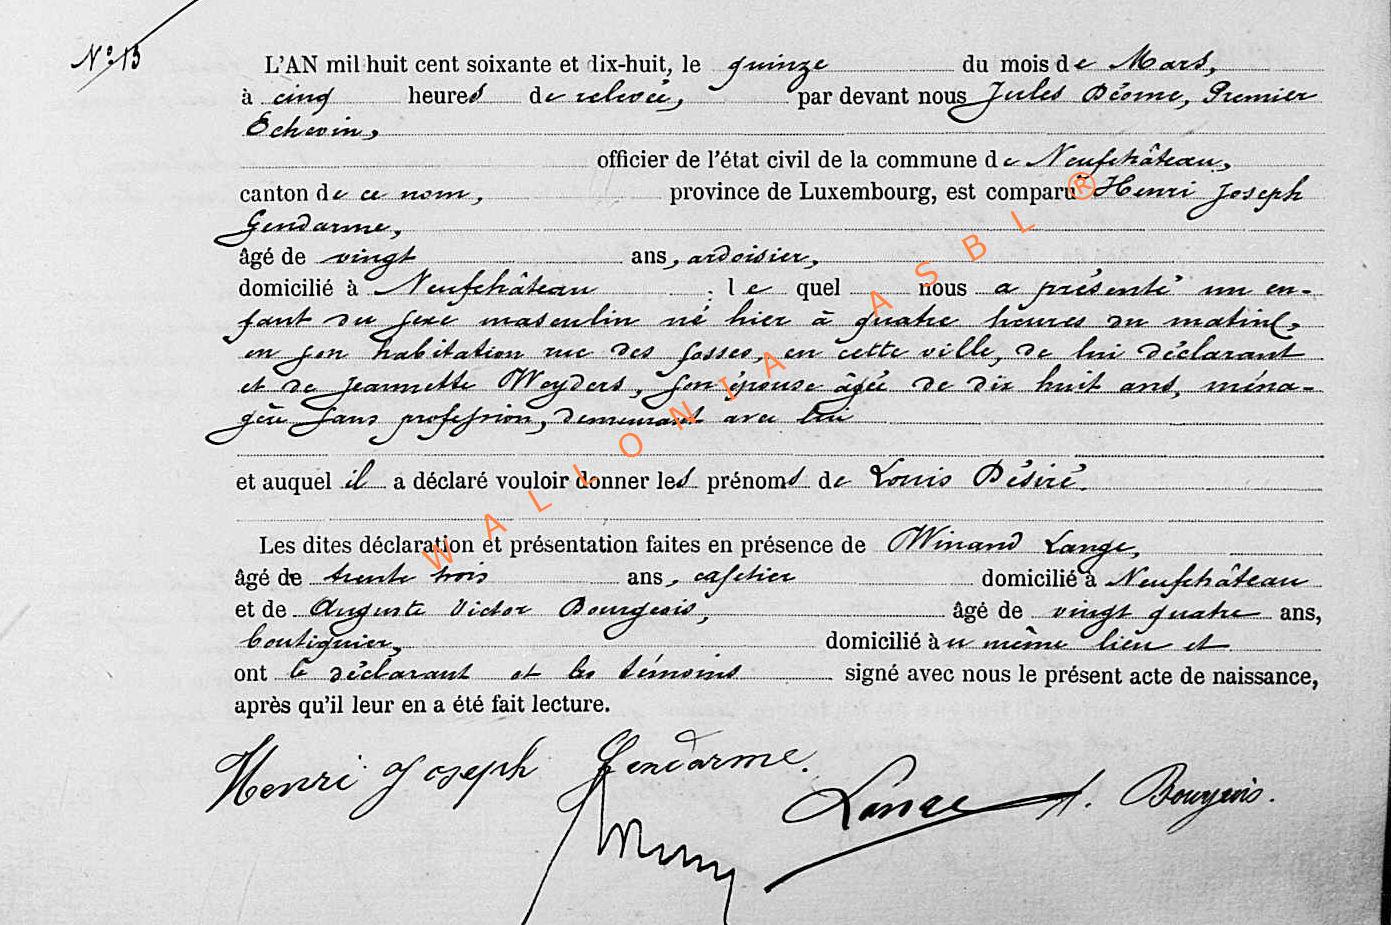 N° 13
L'AN mil huit cent soixante et dix-huit, le quinze du mois de Mars,
à cinq heures de relevée, par devant nous Jules Déome, Premier
Echevin,
officier de l'état civil de la commune de Neufchâteau,
canton de ce nom, province de Luxembourg, est comparu Henri Joseph
Gendarme,
âgé de vingt ans, ardoisier,
domicilié à Neufchâteau ; le quel nous a présenté un en-
fant du sexe masculin né hier à quatre heures du matin,
en son habitation rue des fosses, en cette ville, de lui déclarant
et de Jeannette Weyders, son épouse âgée de dix huit ans, ména-
gère sans profession, demeurant avec lui
et auquel il a déclaré vouloir donner les prénoms de Louis Désiré.
Les dites déclaration et présentation faites en présence de Winand Lange,
âgé de trente trois ans, cafetier domicilié à Neufchâteau
et de Auguste Victor Bourgeois, âgé de vingt quatre ans,
boutiquier, domicilié au même lieu et
ont le déclarant et les témoins signé avec nous le présent acte de naissance,
après qu'il leur en a été fait lecture.
Henri Joseph Gendarme.
Lange A. Bourgeois.
WALLONIA ASBL ®